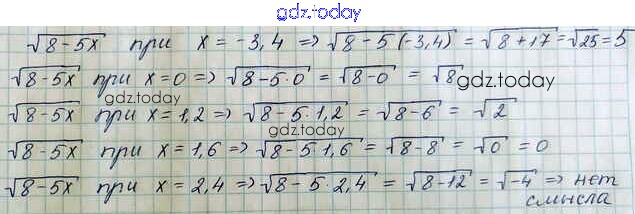 gdz.today
√8-5x при x = -3,4 => √8-5(-3,4) = √8+17 = √25 = 5
√8-5x при x=0 => √8-5·0 = √8-0 = √8 gdz.today
gdz.today
√8-5x при x=1,2 => √8-5·1,2 = √8-6 = √2
gdz.today
√8-5x при x=1,6 => √8-5·1,6 = √8-8 = √0 = 0
√8-5x при x=2,4 => √8-5·2,4 = √8-12 = √-4 => нет
смысла